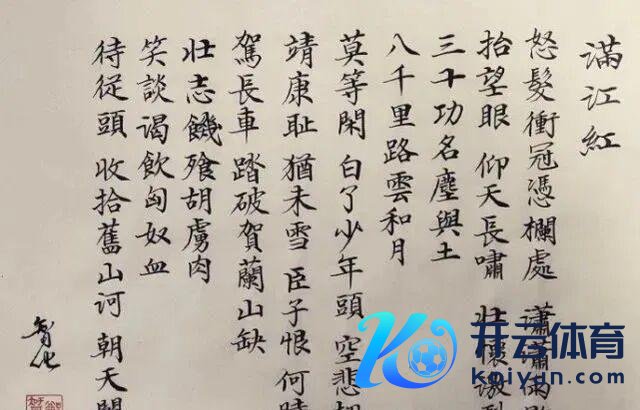 滿江紅
怒髮衝冠憑欄處 瀟瀟雨
抬望眼 仰天長嘯 壯懷激
三十功名塵與土
八千里路雲和月
莫等閑 白了少年頭 空悲
靖康耻 猶未雪 臣子恨何時
駕長車 踏破賀蘭山缺
壯志饑飡胡虜肉
笑談渴飲匈奴血
待從頭 收拾舊山河 朝天闕
开云体育
kaiyun.com